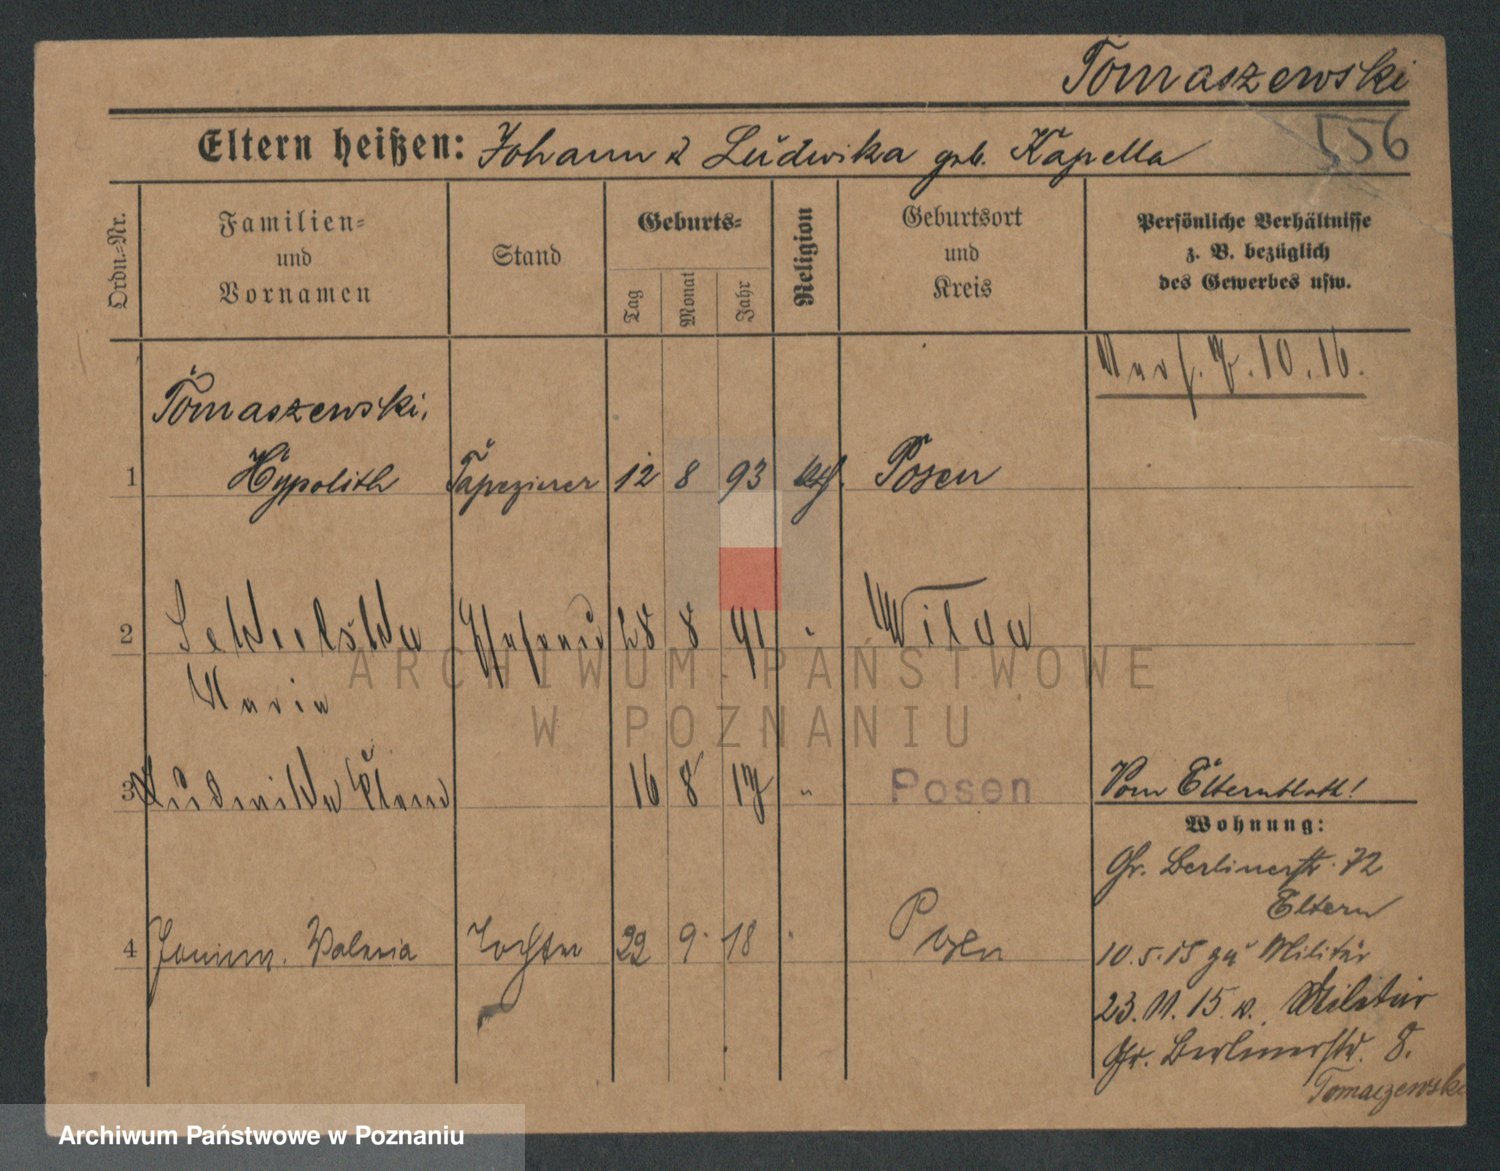 Tomaszewski
556
Eltern heißen: Johann & Ludwika geb. Kapella
Ordn.-Nr.
Familien- und Vornamen
Stand
Geburts-
Tag
Monat
Jahr
Religion
Geburtsort und Kreis
Persönliche Verhältnisse z. B. bezüglich des Gewerbes usw.
10. 16.
Tomaszewski,
1 Hypolith Tapezierer 12 8 93 kath. Posen
2 Ehefrau 28 8 91 " Wilda
Maria
3 Ludwika 16 8 17 " Posen
Vom Elternblatt!
Wohnung:
Gr. Berlinerstr. 72
Eltern
4 Janina. Valeria Tochter 22 9. 18 " Posen
10.5.15 zu Militär
23.11.15 v. Militär
Gr. Berlinerstr. 8.
Tomaszewski
ARCHIWUM PAŃSTWOWE
W POZNANIU
Archiwum Państwowe w Poznaniu